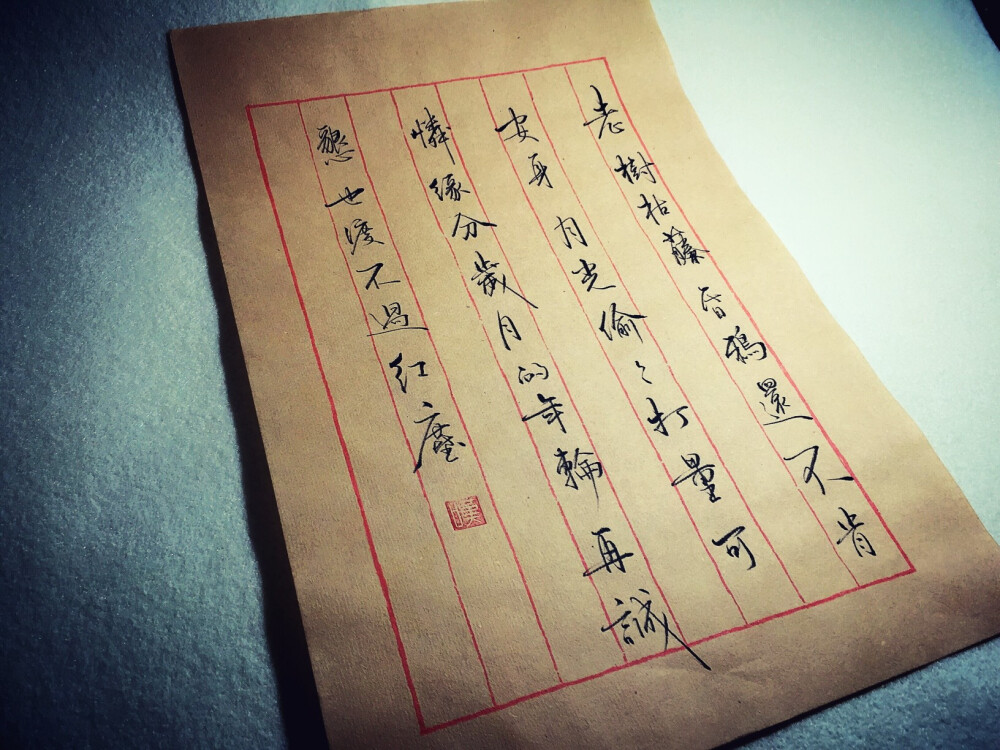 老樹枯藤昏鴉還不肯
安身月光偷々打量可
憐緣分歲月的年輪再誠
懇也渡不過紅塵